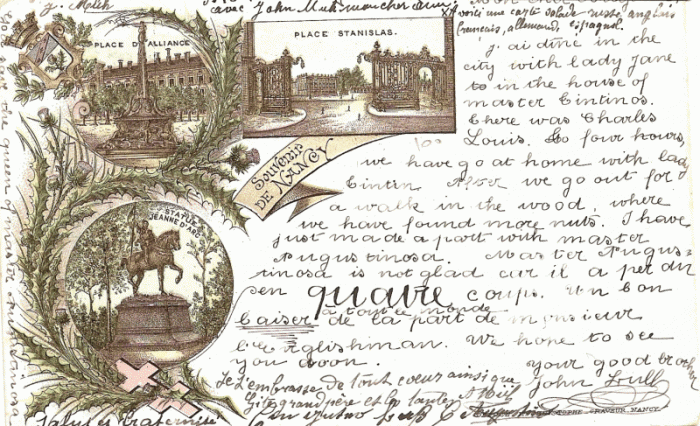 avec John
voici une carte salade russe anglais
français, allemand, espagnol.
PLACE D'ALLIANCE
PLACE STANISLAS.
j'ai diné in the
city with lady Jane
to in the house of
master Tintinos.
There was Charles
Louis. To four hours,
we have go at home with lady
Tintin. After we go out for
a walk in the wood, where
we have found more nuts. I have
just made a part with master
Augustinosa. Master Augus-
tinosa is not glad cur il a perdu
en quatre coups. Un bon
baiser à tout le monde
de la part de monsieur
l'Englishman. We hope to see
you soon. your good brother
John Bull
Souvenir
DE NANCY
STATUE
JEANNE D'ARC
Je t'embrasse de tout coeur ainsi que
grand père et les tantes
GRAVEUR, NANCY.
Salut et fraternité
the queen of master